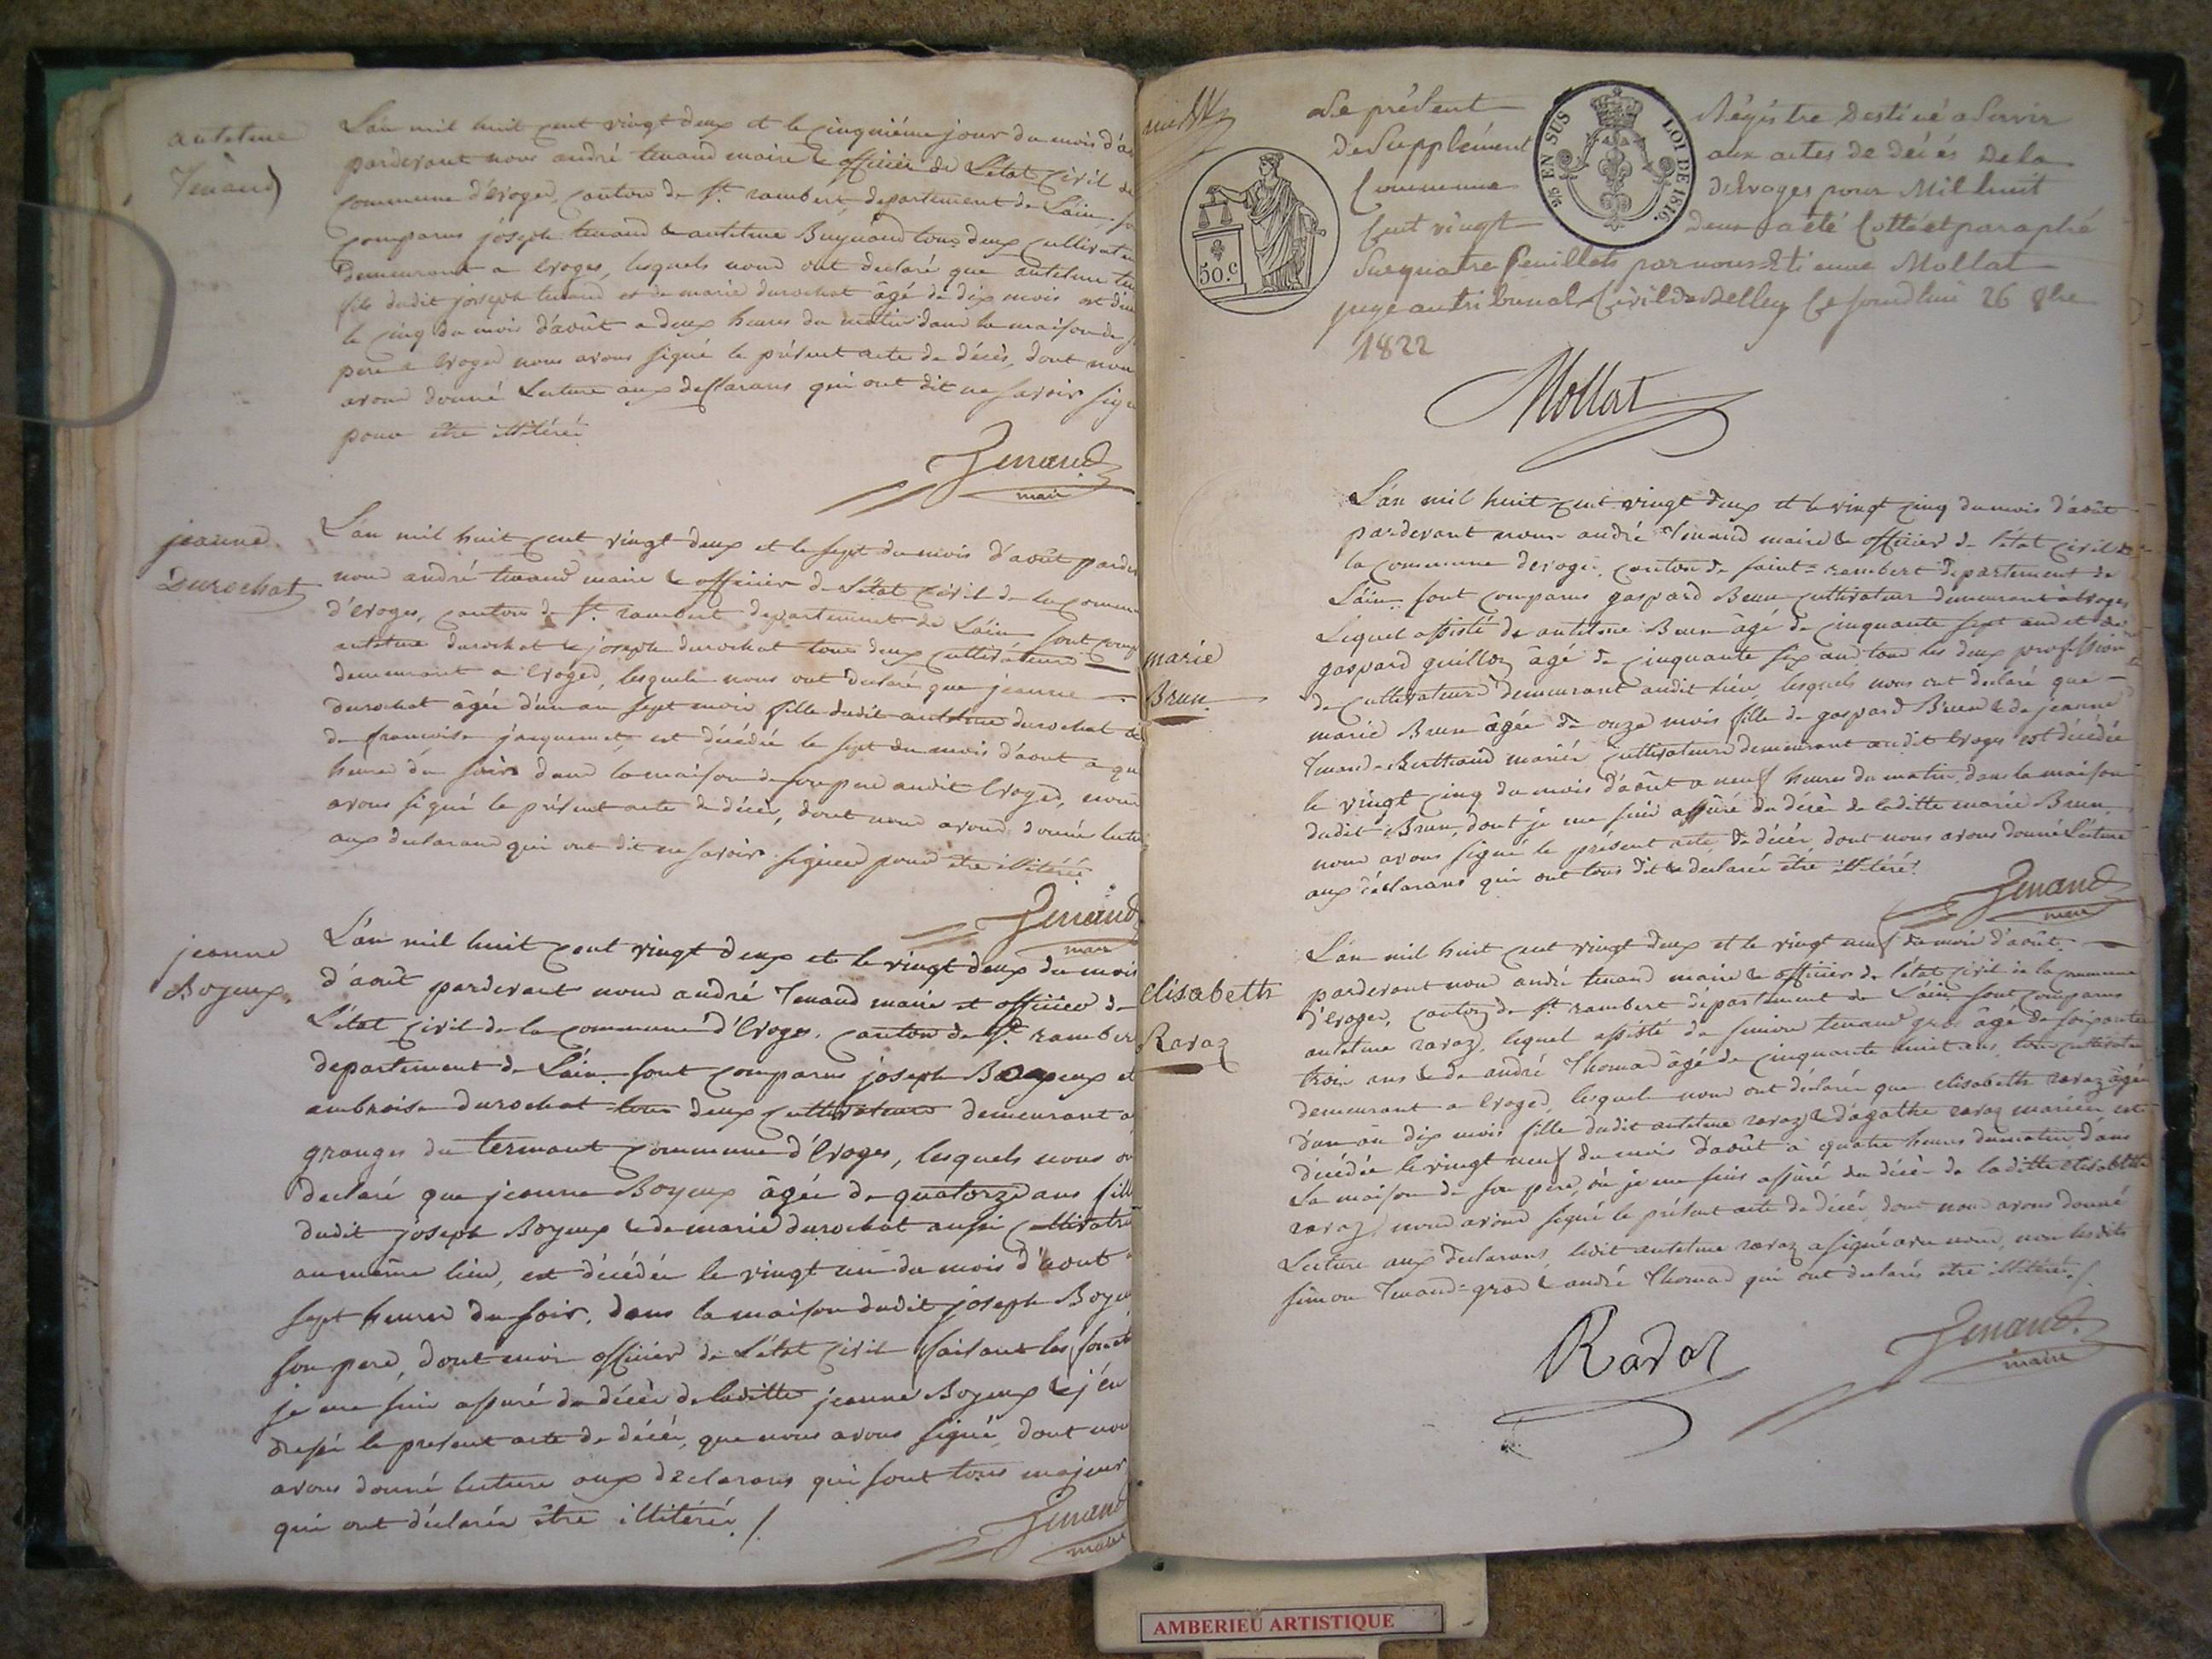 antelme
Tenand
L'an mil huit cent vingt deux et le cinquième jour du mois d'ao
pardevant nous andré tenand maire & officier de L'état civil de
commune d'evoges, canton de St. rambert, departement de Lain, so
comparus joseph tenand & antelme Buynand tous deux cultivate
demeurant a Evoges, lesquels nous ont declaré que antelme ten
fils dudit joseph tenand et de marie durochat âgé de dix mois est déc
le cinq du mois d'août a deux heures du matin dans la maison de s
pere a Evoges nous avons signé le présent acte de décès, dont nou
avons donné Lecture aux declarans qui ont dit ne savoir sign
pour être illitéré
Tenand
maire
jeanne
Durochat
L'an mil huit cent vingt deux et le sept du mois d'août pardev
nous andré tenand maire & officier de L'état civil de la commun
d'evoges, canton de St. rambert departement de Láin sont comp
antelme durochat & joseph durochat tous deux cultivateurs
demeurant a Evoges, lesquels nous ont declaré que jeanne
durochat âgée d'un an sept mois fille dudit antelme durochat &
de francoise jacquemet, est décédée le sept du mois d'aout a qu
heures du soir dans la maison de son pere audit Evoges, nous
avons signé le présent acte de décès, dont nous avons donné lectu
aux declarans qui ont dit ne savoir signer pour être illitéré
Tenand
maire
jeanne
Boyeux
L'an mil huit cent vingt deux et le vingt deux du mois
d'août pardevant nous andré Tenand maire et officier de
L'état civil de la commune d'Evoges, canton de St. rambert
departement de Láin sont comparus joseph Boyeux et
ambroise durochat tous deux cultivateurs demeurant a
granges du termant commune d'Evoges, lesquels nous on
declaré que jeanne Boyeux âgée de quatorze ans fille
dudit joseph Boyeux & de marie durochat aussi cultivatri
au même lieu, est décédée le vingt un du mois d'aout a
sept heures du soir, dans la maison dudit joseph Boyeu
son pere, dont moi officier de L'état civil faisant les foncti
je me suis assuré du décès de laditte jeanne Boyeux & j'en
dressé le present acte de décès, que nous avons signé, dont nou
avons donné lecture aux déclarans qui sont tous majeurs
qui ont déclarés être illitérés ./.
Tenand
maire
Le présent Régistre destiné a Servir
de Supplément aux actes de décés de la
Commune d'Evoges pour Mil huit
Cent vingt deux a été Cotté et paraphé
Sur quatre feuillets par nous Etienne Mollat
juge au tribunal Civil de Belley Ce jourd'hui 26 8bre
1822
25 EN SUS
LOI DE 1816.
50.c
Mollat
marie
Brun
L'an mil huit cent vingt deux et le vingt cinq du mois d'août
pardevant nous andré Tenand maire & officier de l'état civil de
la commune devoges, canton de saint = rambert departement de
Láin sont comparus gaspard Brun cultivateur demeurant à Evoges
Lequel assisté de antelme Brun âgé de cinquante sept ans et de
gaspard guilloz âgé de cinquante six ans tous les deux profession
de cultivateurs demeurant audit lieu, lesquels nous ont declaré que
marie Brun âgée de onze mois fille de gaspard Brun & de jeanne
Tenand=Berthaud mariés cultivateurs demeurant audit Evoges est décédée
le vingt cinq du mois d'août a neuf heures du matin, dans la maison
dudit Brun, dont je me suis assuré du décès de laditte marie Brun,
nous avons signé le présent acte de décès, dont nous avons donné Lecture
aux déclarans qui ont tous dit & declaré être illitéré.
Tenand
maire
elisabeth
Ravaz
L'an mil huit cent vingt deux et le vingt neuf du mois d'août.
pardevant nous andré tenand maire & officier de l'état civil de la commune
d'Evoges, canton de St. rambert département de Láin sont comparus
antelme ravaz, lequel assisté de simon tenand gros âgé de soixante
trois ans & de andré Thomas âgé de cinquante huit ans, tous cultivateurs
demeurant a Evoges, lesquels nous ont déclarés que elisabeth ravaz âgée
d'un an dix mois fille dudit antelme ravaz & d'agathe ravaz mariés, est
décédée le vingt neuf du mois d'août à quatre heures du matin dans
La maison de son pere, où je me suis assuré du décès de laditte elisabeth
ravaz, nous avons signé le présent acte de décès, dont nous avons donné
Lecture aux declarans, ledit antelme ravaz a signé avec nous, non lesdits
simon Tenand=gros & andré Thomas qui ont declarés être illitérés./.
Ravaz
Tenand
maire
AMBERIEU ARTISTIQUE